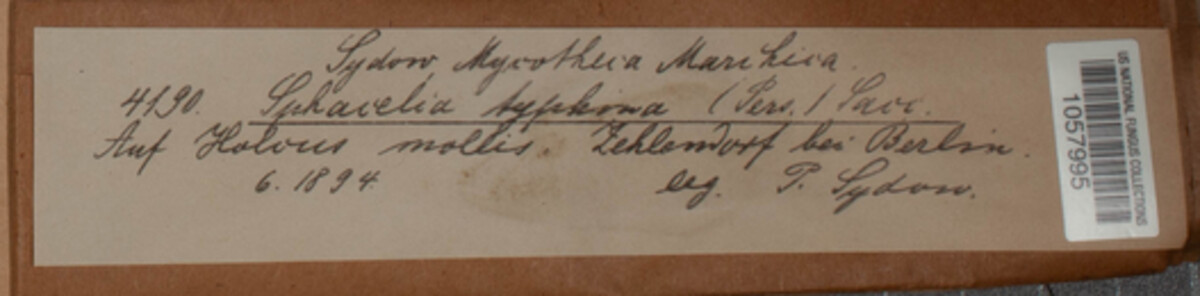 Sydow Mycotheca Marchica.
4190. Sphacelia typhina (Pers.) Sacc.
Auf Holcus mollis. Zehlendorf bei Berlin.
6. 1894. leg. P. Sydow.
US NATIONAL FUNGUS COLLECTIONS
1057995